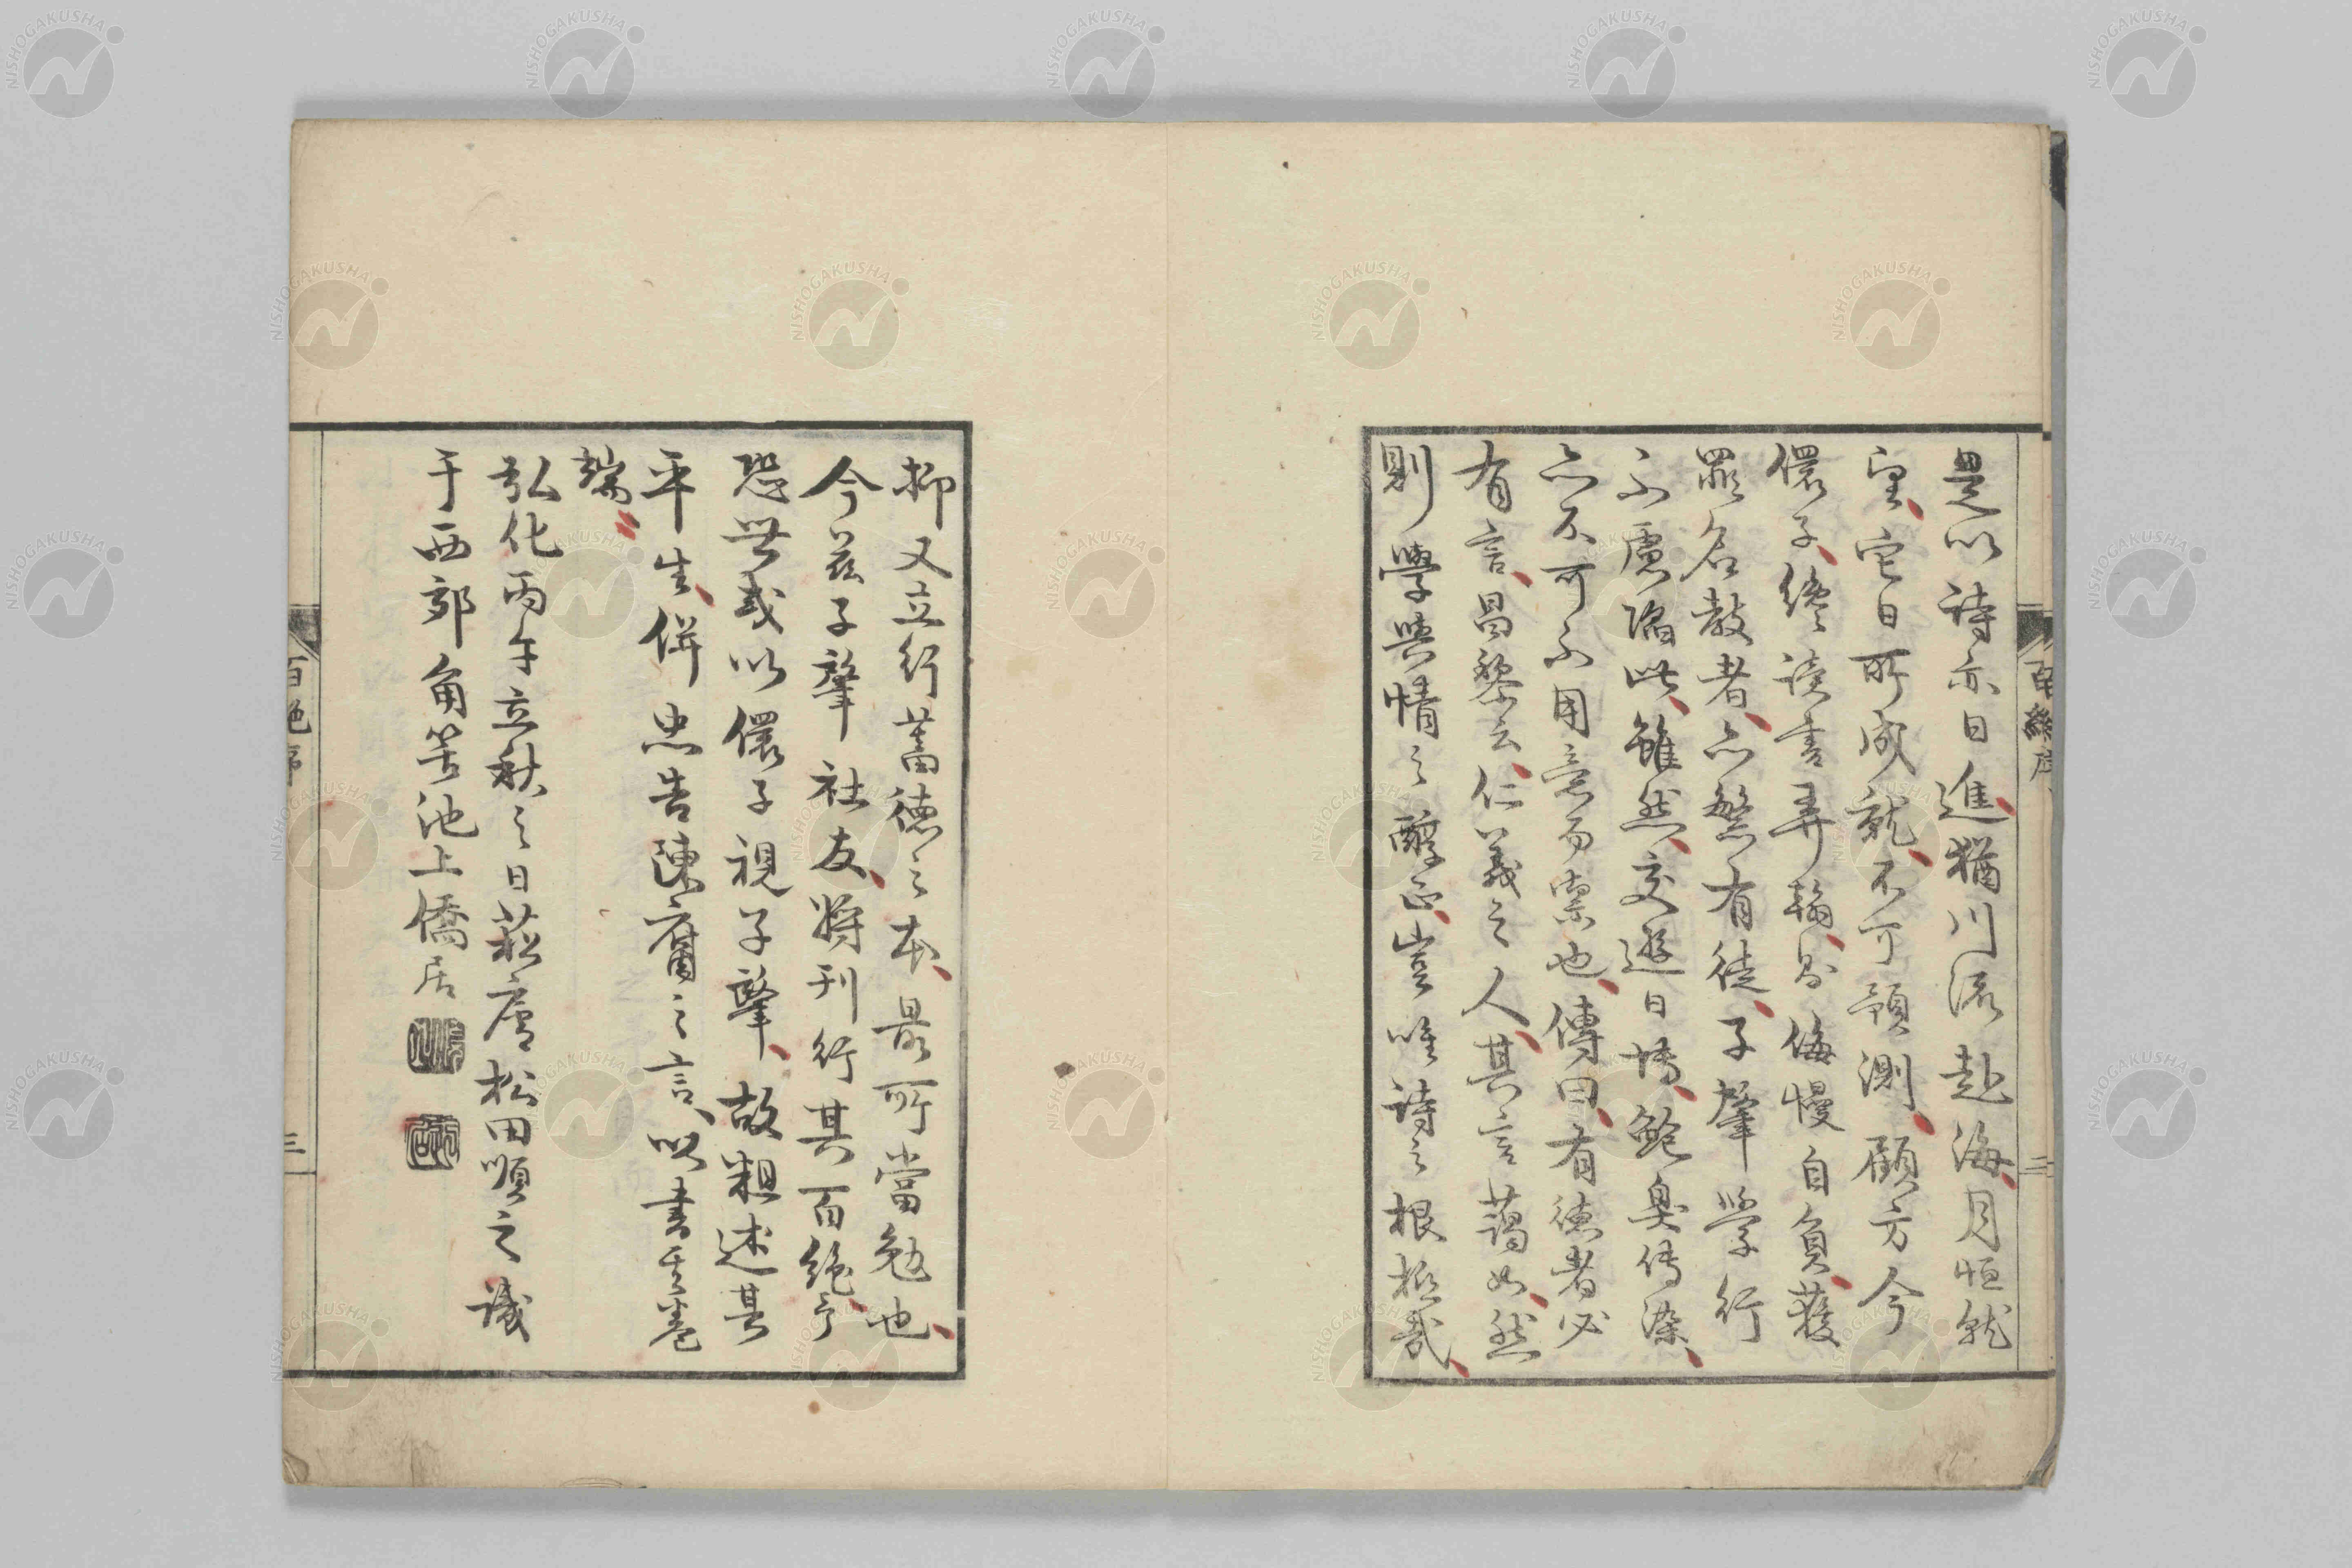 是以詩亦日進猶川流赴海月恒就
望它日所成就不可預測顧方今
儇子纔読書弄翰則侮慢自負獲
罪名教者亦繁有徒子肇学行
不慮陷此雖然交遊日博鮑臭传染
亦不可不用意而禦也傳曰有徳者必
有言昌黎云仁義之人其言藹如然
則學與情之醇正豈唯詩之根柢哉
抑又立行蓄徳之本最所當勉也
今茲子肇社友将刊行其百絶予
恐世或以儇子視子肇故粗述其
平生併忠告陳腐之言以書其卷
端
弘化丙午立秋之日菘廬松田順之識
于西郊角筈池上僑居
百絶序
三